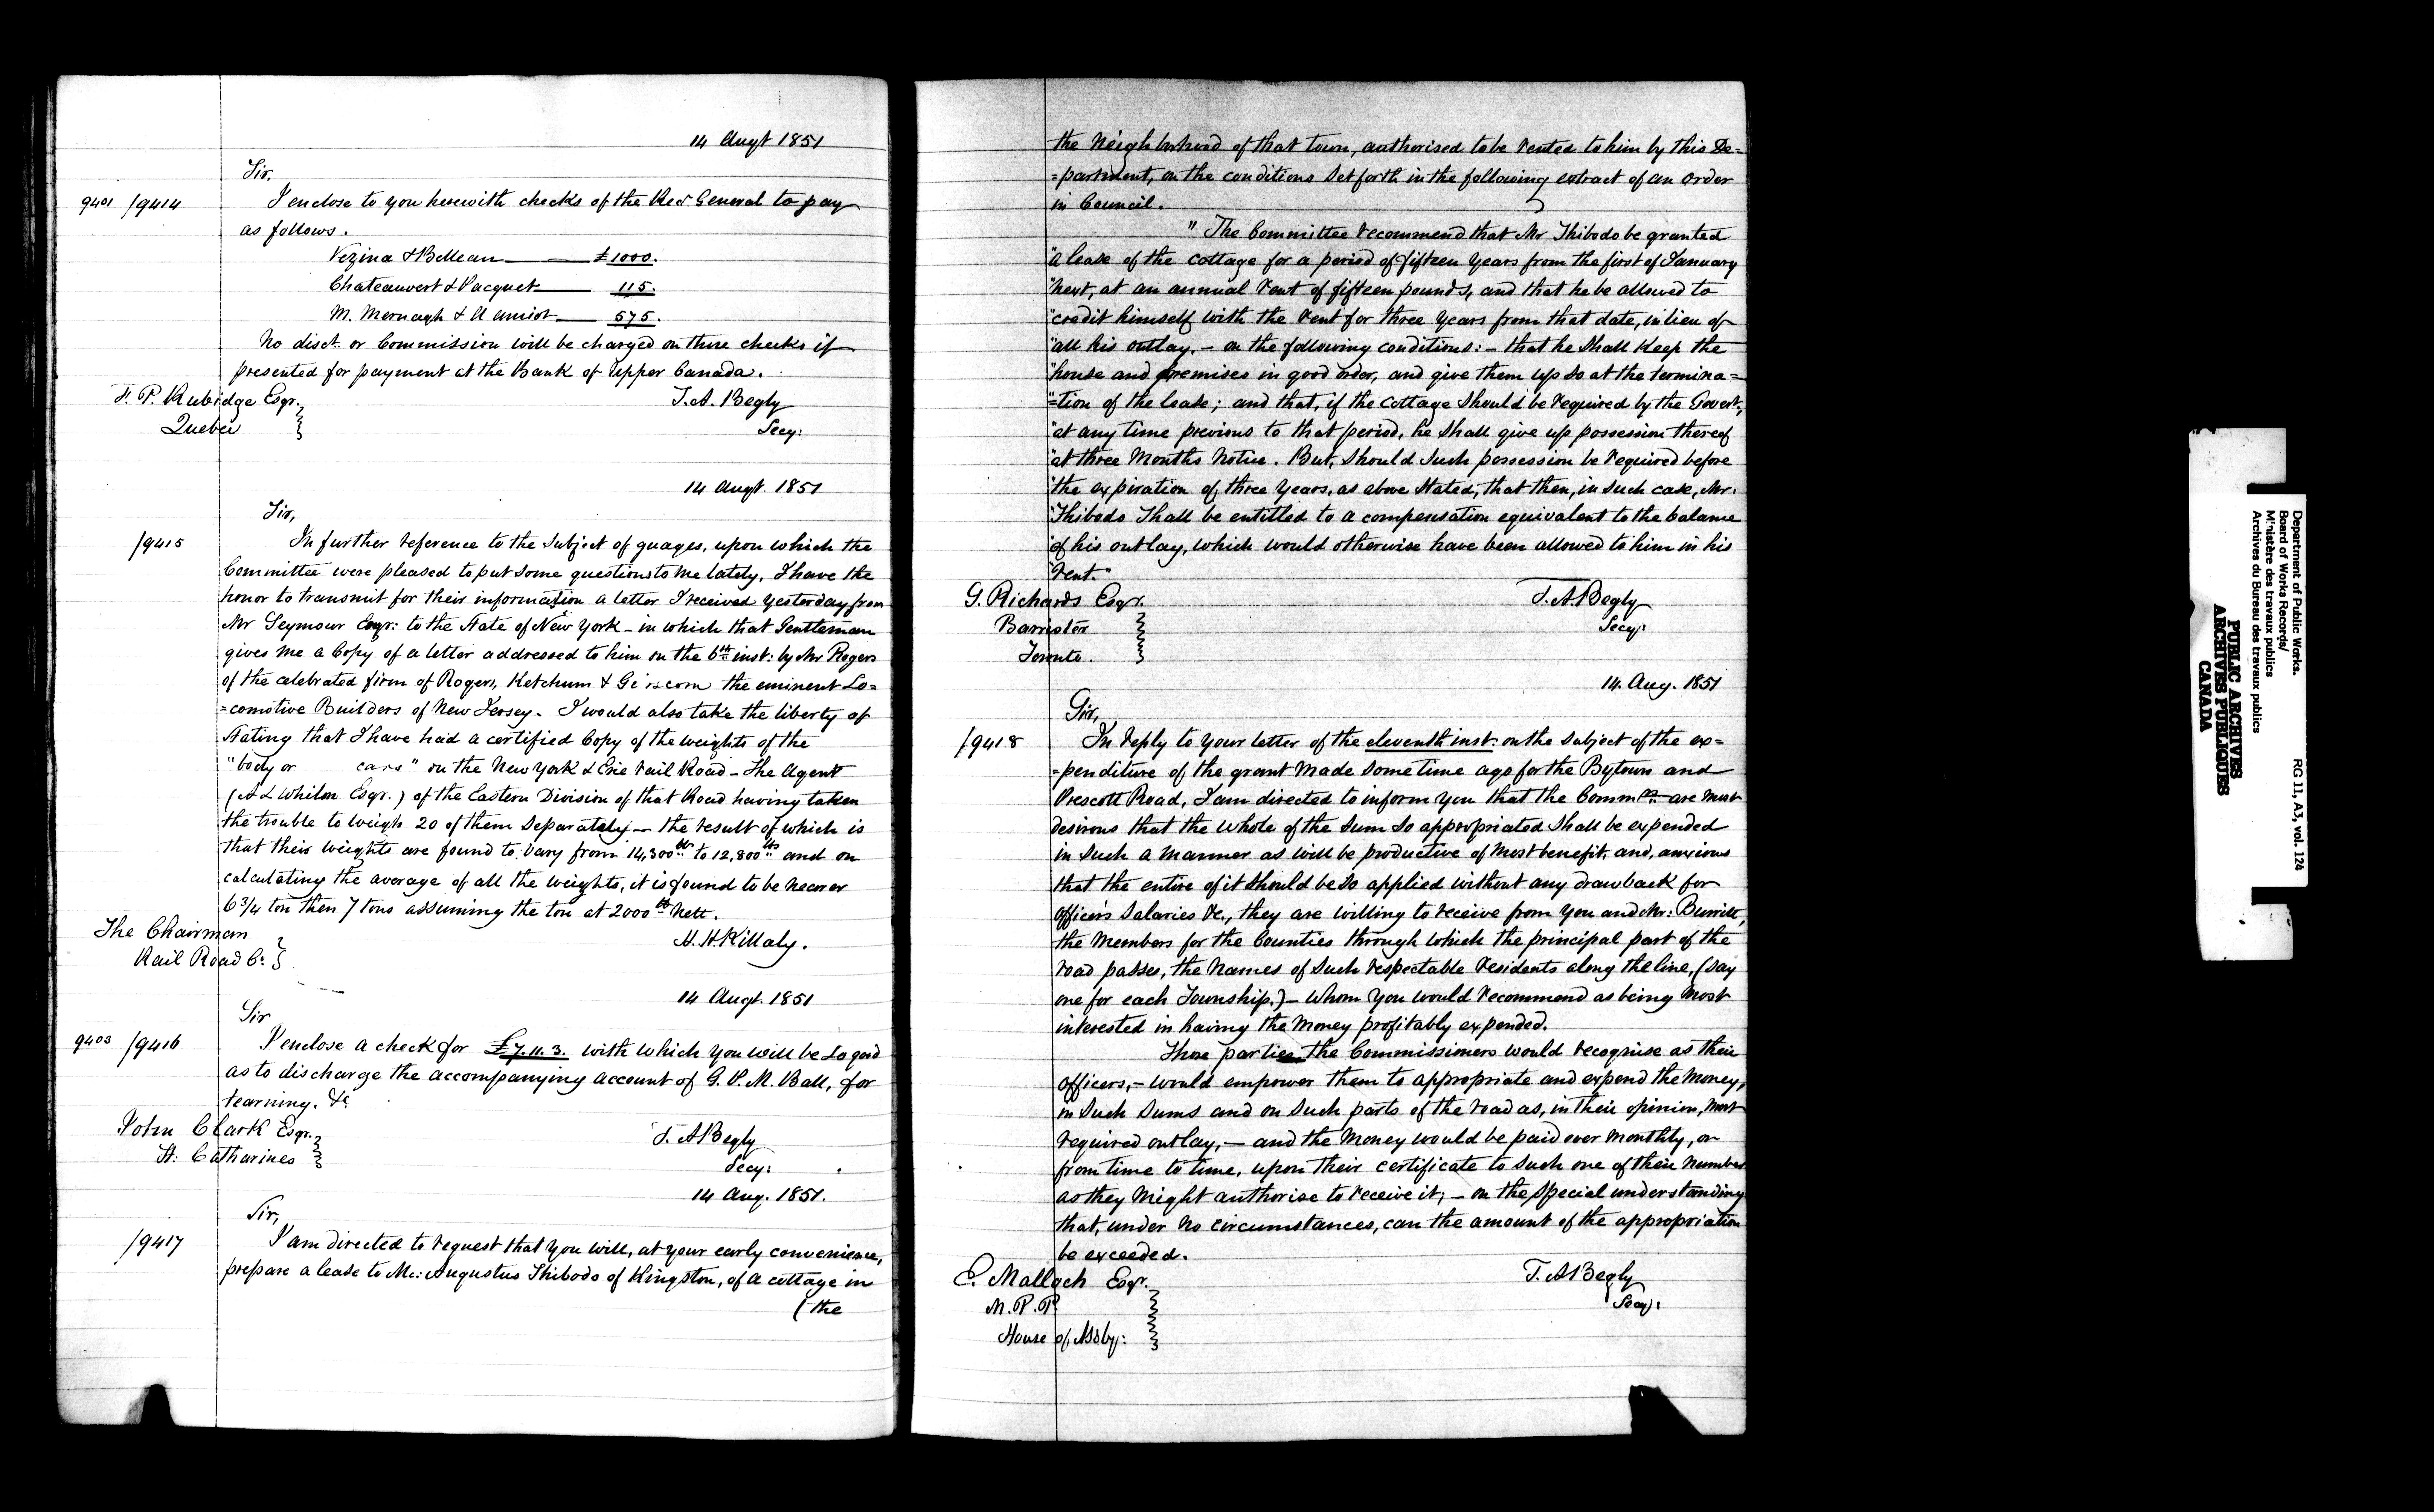 14 Augt 1851
Sir,
9401 /9414 I enclose to you herewith checks of the Recr General to pay
as follows.
Vezina & Belleau £1000.
Chateauvert & Pacquet 115.
M. Mernagh & A Amiot 575.
No disct. or Commission will be charged on these checks if
presented for payment at the Bank of Upper Canada.
F. P. Rubidge Esqr. T. A. Begly
Quebec Secy:
14 Augt. 1851
Sir,
/9415 In further reference to the subject of guages, upon which the
Committee were pleased to put some questions to me lately, I have the
honor to transmit for their information a letter I received yesterday from
Mr Seymour Engr: to the State of New York – in which that Gentleman
gives me a Copy of a letter addressed to him on the 6th inst: by Mr Rogers
of the celebrated firm of Rogers, Ketchum & the eminent Lo=
=comotive Builders of New Jersey. I would also take the liberty of
stating that I have had a certified Copy of the weights of the
"body or cars" on the New York & Erie rail Road – The Agent
(A L Whilon Esqr.) of the Eastern Division of that Road having taken
the trouble to weigh 20 of them separately – the result of which is
that their weights are found to vary from 14,300 lbs to 12,800 lbs and on
calculating the average of all the weights, it is found to be nearer
6 3/4 ton then 7 tons assuming the ton at 2000 lb Nett.
The Chairman H. H. Killaly.
Rail Road Co.
14 Augt. 1851
Sir
9403 /9416 I enclose a check for £7.11.3. with which you will be so good
as to discharge the accompanying account of G. P. M. Ball, for
teaming. &c
John Clark Esqr. T. A Begly
St. Catharines Secy:
14 Aug. 1851.
Sir,
/9417 I am directed to request that you will, at your early convenience,
prepare a lease to Mr: Augustus Thibodo of Kingston, of a cottage in
(the
the neighborhood of that town, authorised to be rented to him by this De=
=partment, on the conditions set forth in the following extract of an order
in Council.
" The Committee recommend that Mr Thibodo be granted
"a lease of the cottage for a period of fifteen years from the first of January
"next, at an annual rent of fifteen pounds, and that he be allowed to
"credit himself with the rent for three years from that date, in lieu of
"all his outlay, – on the following conditions: – that he shall keep the
"house and premises in good order, and give them up so at the termina=
"=tion of the lease; and that, if the cottage should be required by the Govert.,
"at any time previous to that period, he shall give up possession thereof
"at three months notice. But, should such possession be required before
"the expiration of three years, as above stated, that then, in such case, Mr.
"Thibodo shall be entitled to a compensation equivalent to the balance
"of his outlay, which would otherwise have been allowed to him in his
"rent."
G. Richards Esqr. T. A. Begly
Barrister Secy:
Toronto.
14. Aug. 1851
Sir,
/9418 In reply to your letter of the eleventh inst: on the subject of the ex=
=penditure of the grant made sometime ago for the Bytown and
Prescott Road, I am directed to inform you that the Commrs. are most
desirous that the whole of the sum so appropriated shall be expended
in such a manner as will be productive of most benefit, and, anxious
that the entire of it should be so applied without any drawback for
officer's salaries &c., they are willing to receive from you and Mr: Burritt,
the members for the Counties through which the principal part of the
road passes, the names of such respectable residents along the line, (say
one for each Township,) – whom you would recommend as being most
interested in having the money profitably expended.
Those parties the Commissioners would recognise as their
officers, – would empower them to appropriate and expend the money,
in such sums and on such parts of the road as, in their opinion, most
required outlay, – and the money would be paid over monthly, or
from time to time, upon their certificate to such one of their number
as they might authorise to receive it, – on the special understanding
that, under no circumstances, can the amount of the appropriation
be exceeded.
E. Malloch Esqr. T. A Begly
M.P.P. Secy:
House of Assby:
Department of Public Works.
Board of Works Records/
Ministère des travaux publics
Archives du Bureau des travaux publics
RG 11, A3, vol. 124
PUBLIC ARCHIVES
ARCHIVES PUBLIQUES
CANADA